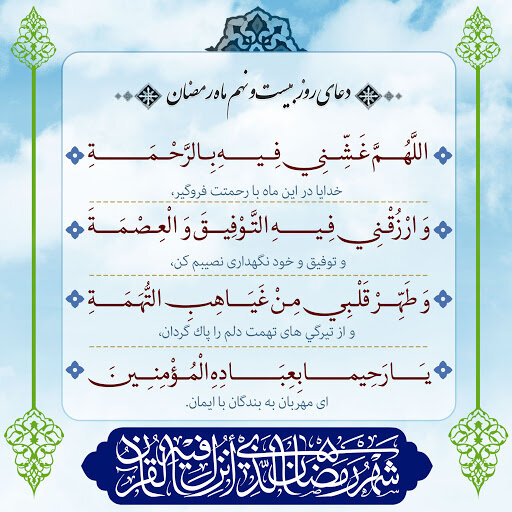 دعای روز بیست و نهم ماه رمضان
اللَّهُمَّ غَشِّنِي فِيهِ بِالرَّحْمَةِ
خدایا در این ماه با رحمتت فروگیر،
وَ ارْزُقْنِي فِيهِ التَّوْفِيقَ وَ الْعِصْمَةَ
و توفیق و خود نگهداری نصیبم کن،
وَ طَهِّرْ قَلْبِي مِنْ غَيَاهِبِ التُّهَمَةِ
و از تیرگی های تهمت دلم را پاک گردان،
يَا رَحِيما بِعِبَادِهِ الْمُؤْمِنِينَ
ای مهربان به بندگان با ایمان.
شَهْرُ رَمَضَانَ الَّذِي أُنْزِلَ فِيهِ الْقُرْآن